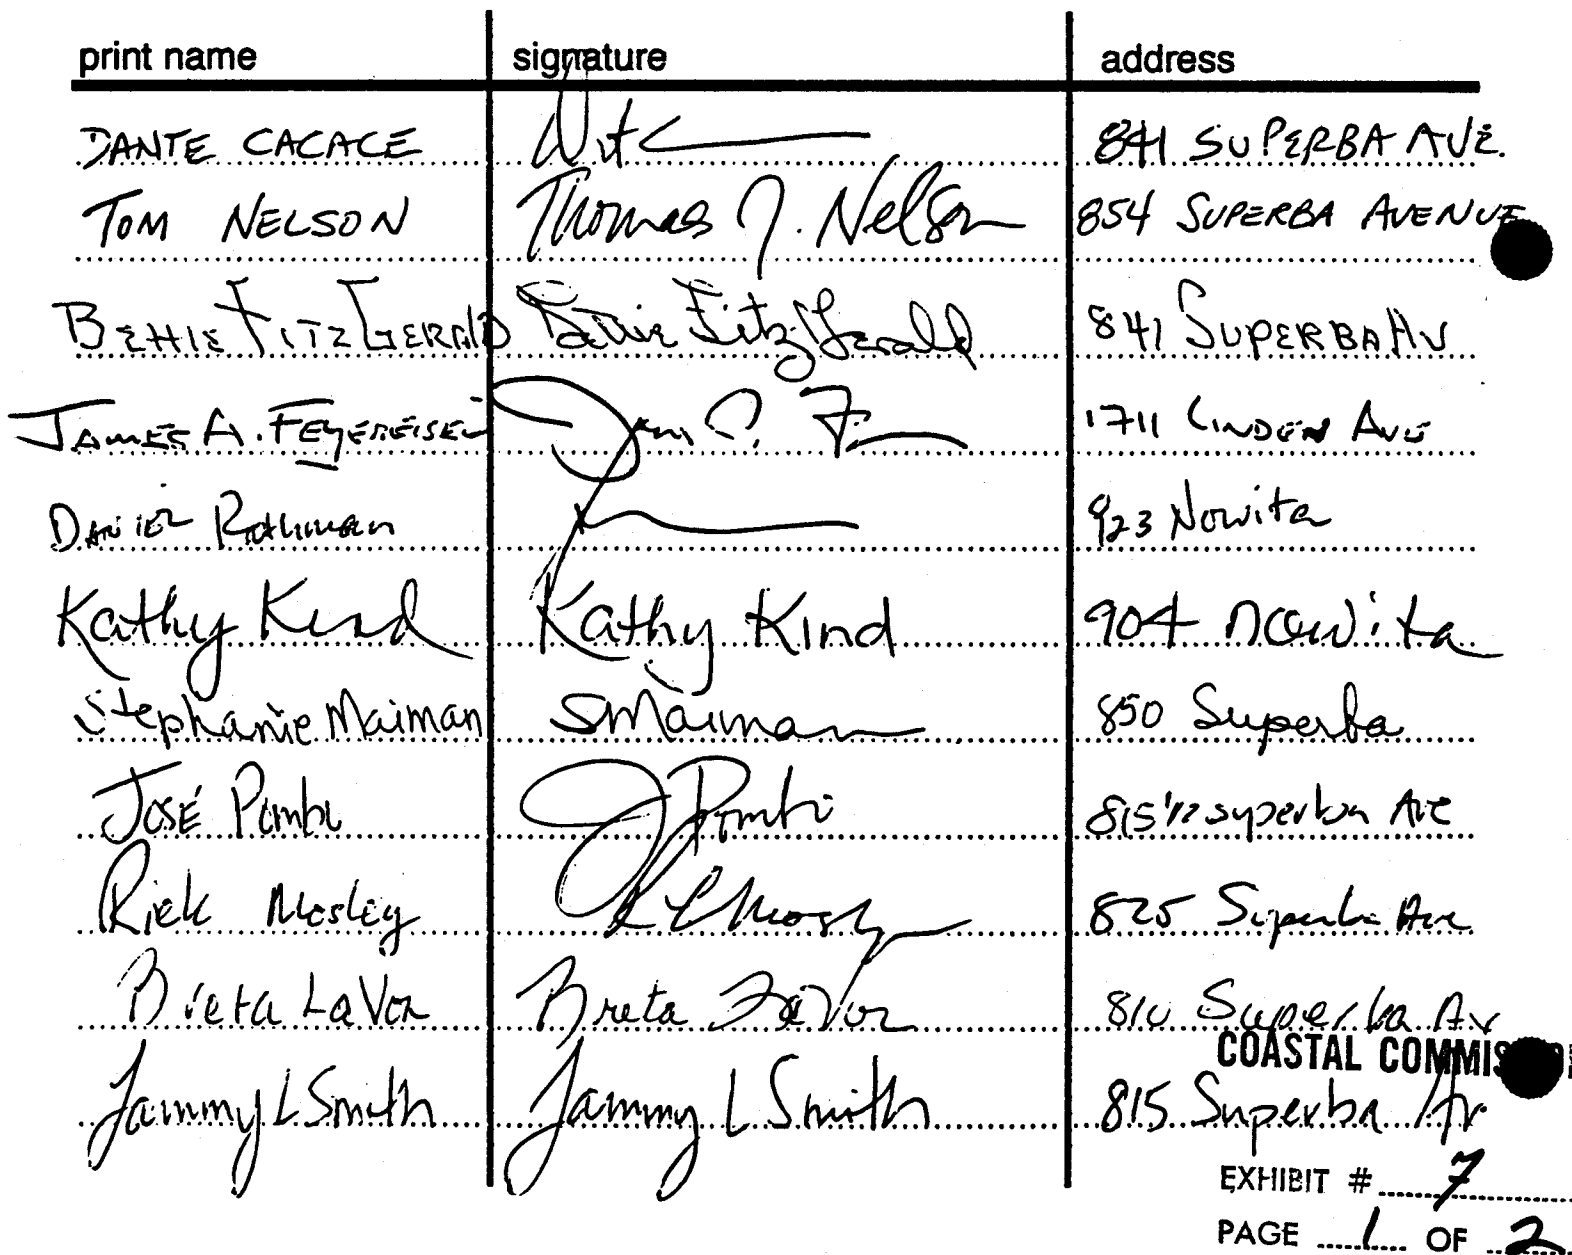 print name signature address
DANTE CACACE 841 SUPERBA AVE.
TOM NELSON Thomas J. Nelson 854 SUPERBA AVENUE
BETTIE FITZGERALD Bettie FitzGerald 841 SUPERBA AV
JAMES A. FEYEREISEN 1711 LINDEN AVE
DANIEL Rothman 923 Nowita
Kathy Kind Kathy Kind 904 Nowita
Stephanie Maiman SMaiman 850 Superba
JOSÉ Pombi J Pombi 815 1/2 superba Ave
Rick Mosley R L Mosley 825 Superba Ave
Breta LaVor Breta LaVor 810 Superba Av
COASTAL
Tammy L Smith Tammy L Smith 815 Superba Av
EXHIBIT # 7
PAGE 1 OF 2